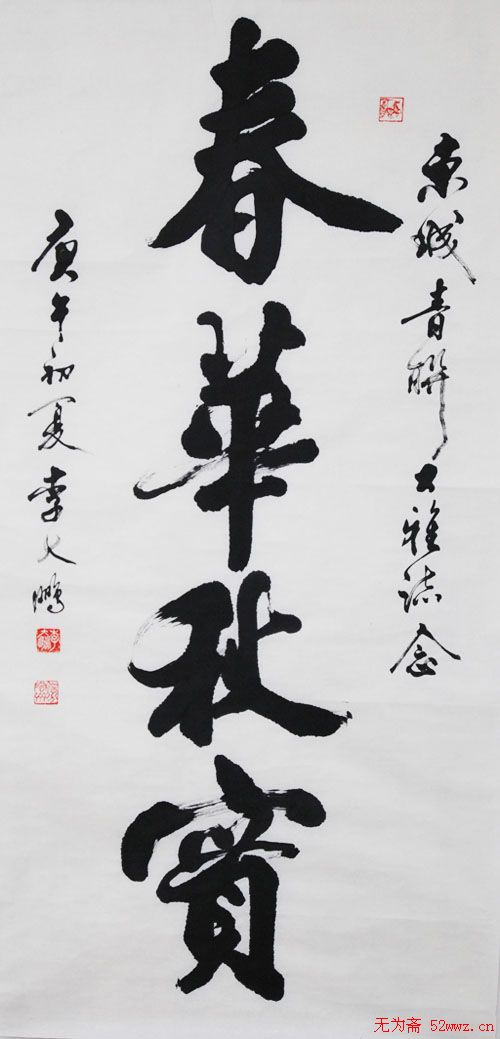 东城青联大雅誌念
春華秋實
庚午初夏李大鹏
无为斋 52wwz.cn